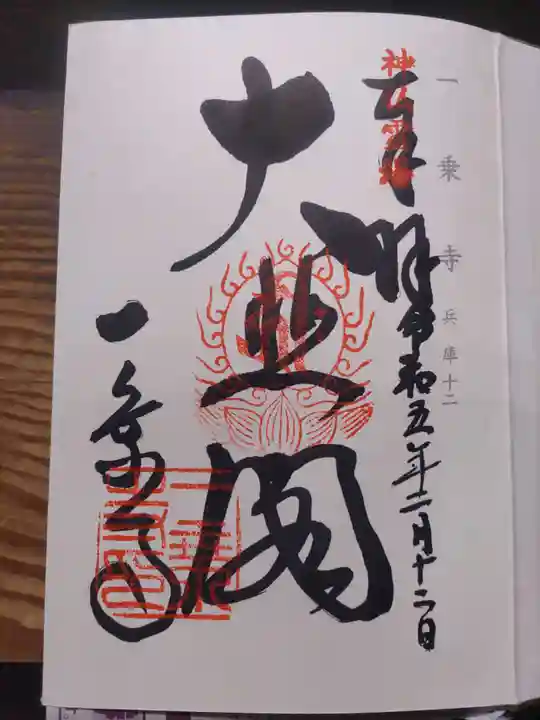 一乗寺 兵庫十二
奉拝 令和五年二月十二日
大悲閣
一乗寺